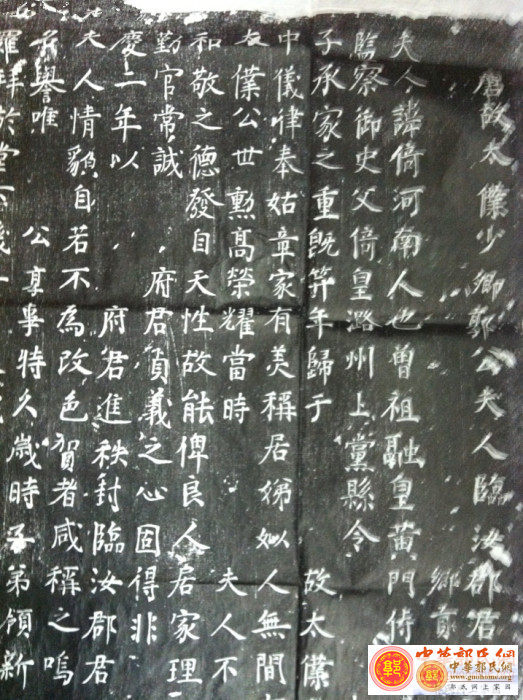 唐故太僕少卿郭公夫人臨汝郡君
鄉貢
夫人諱倚河南人也曾祖融皇黃門侍
監察御史父倚皇潞州上黨縣令
子承家之重既笄年歸于 故太僕
中儀律奉姑章家有美稱居娣姒人無間
太僕公世勳高榮耀當時 夫人不
和敬之德發自天性故能俾良人居家理
勤官常誠 府君負義之心固得非
慶二年以 府君進秩封臨汝郡君
夫人情貌自若不為改色賀者咸稱之嗚
譽唯 公享事特久歲時子弟領新
羅拜於堂下
中華郭氏網
中華郭氏網
www.gnuhome.org
郭氏網上家園